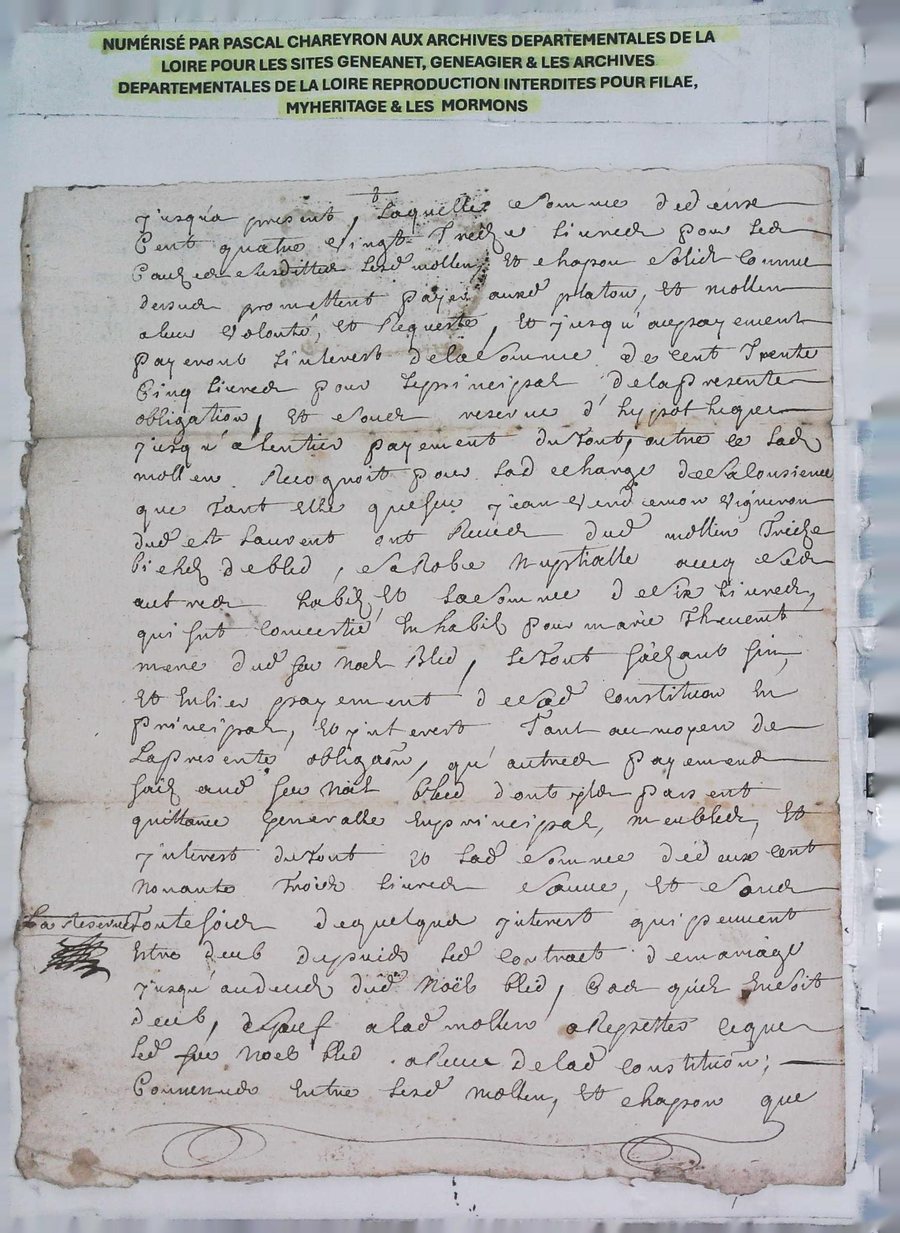 NUMÉRISÉ PAR PASCAL CHAREYRON AUX ARCHIVES DEPARTEMENTALES DE LA
LOIRE POUR LES SITES GENEANET, GENEAGIER & LES ARCHIVES
DEPARTEMENTALES DE LA LOIRE REPRODUCTION INTERDITES POUR FILAE,
MYHERITAGE & LES MORMONS
jusqu'a present, Laquelle somme de deux
Cent quatre vingt Treize Livres pour les
Causes susdittes lesd mollen, Et chapon solid comme
dessus promettent payer ausd platon, Et mollen
a leur volonté, Et Requeste, Et jusqu'au payement
payeront L'interest de la somme de cent Trente
Cinq Livres pour le principal de la presente
obligation, Et soubs reserve d'hypotheque
jusqu'a l'entier payement du Tout, outre ce Lad
mollen Recognoit pour lad eschange
que Tant Elle que feu jean vigneron
dud st Laurent ont Receu dud mollin Treize
bichez de bled, sa Robe Nuptialle avec ses
autres habitz, Et la somme de six Livres,
qui fut Convertie En habit pour marie Thevent
mere dud feu Noel Bled, Le Tout faizant fin,
Et Entier payement de lad constitution En
principal, Et jnterest Tant au moyen de
La presente obligaon, qu'autres payemens
faiz aud feu Noel bled dont passent
quittance Generalle En principal, meubles, Et
jnterest du Tout Et lad somme de deux cent
Nonante Trois Livres sauve, Et sauf
La Reserve Toutefois de quelque jnterest qui peuvent
Estre deub depuis led contract de mariage
jusqu'au deces dud Noël bled, Cas qu'il En soit
deub, sauf a lad mollen a Repetter ce que
led feu Noel bled a Receu de lad constituon;
Convenus Entre lesd mollen, Et chapon que